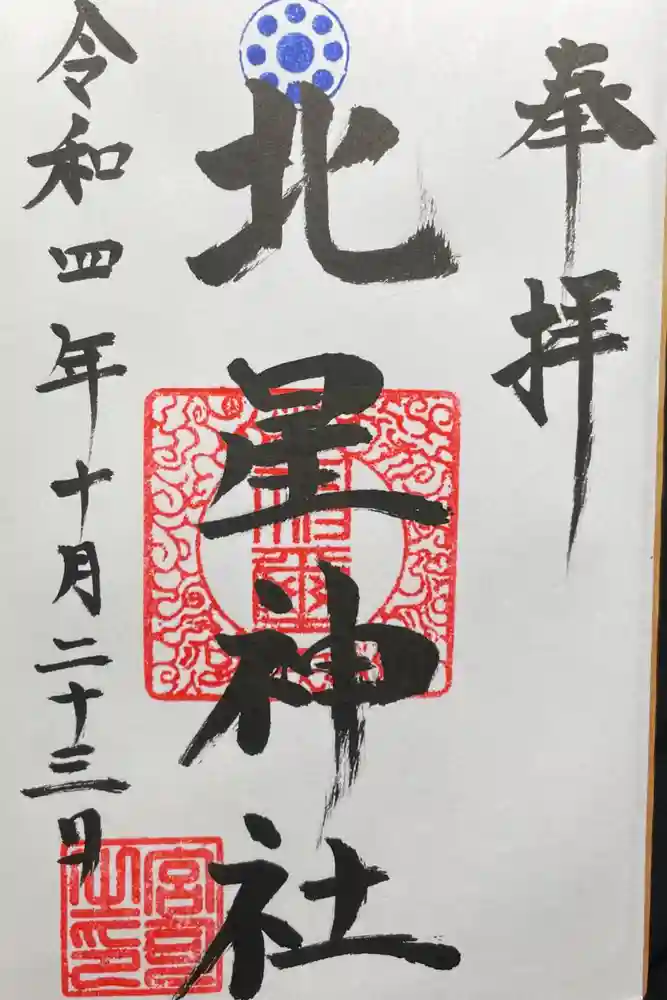 奉拝
北星神社
令和四年十月二十三日
宮司之印